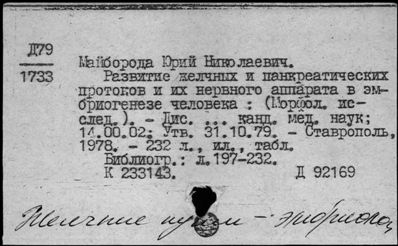 Д79
1733
Майборода Юрий Николаевич.
Развитие желчных и панкреатических
протоков и их нервного аппарата в эм-
бриогенезе человека : (Морфол. ис-
след.). - Дис. ... канд. мед. наук;
14.00.02; Утв. 31.10.79. - Ставрополь,
1978. - 232 л., ил., табл.
Библиогр.: л.197-232.
К 233143. Д 92169
Желчные - эмбриолог